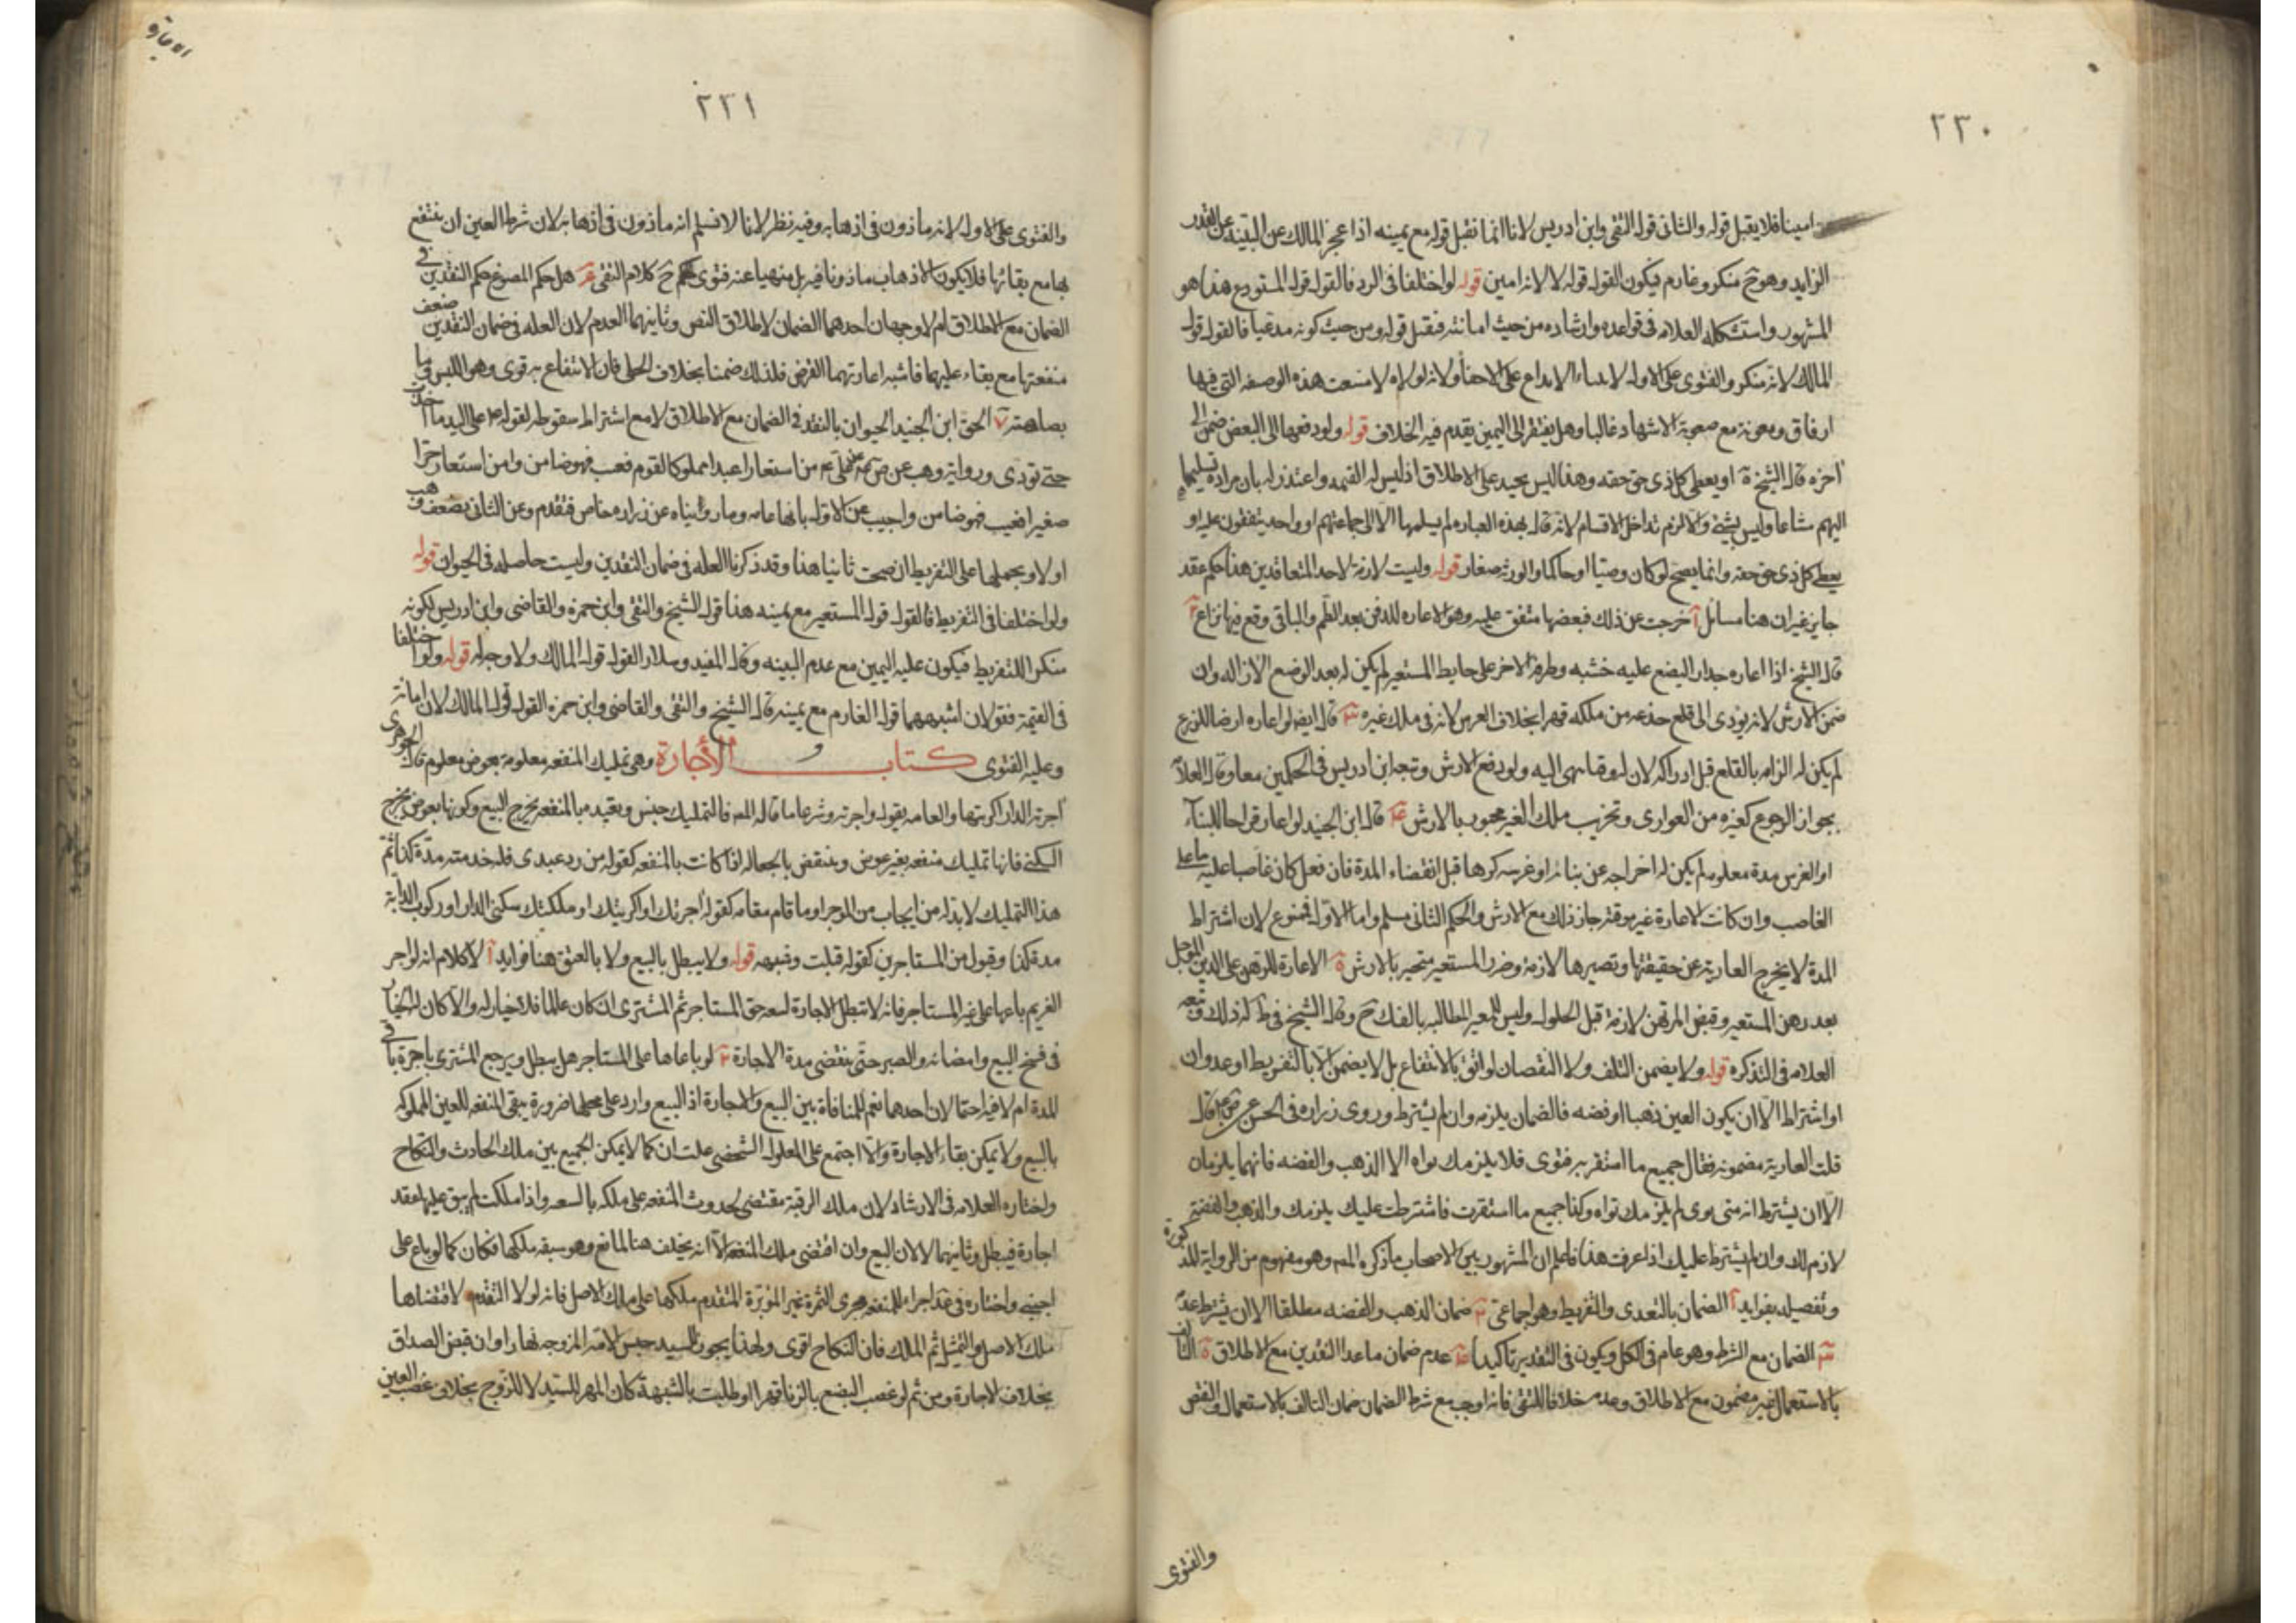 ٢٣٠
امينا فلا يقبل قوله والثانى قول التقى وابن ادريس لانا انما نقبل قوله مع يمينه اذا عجز المالك عن البينة على القدر
الزايد وهو ح منكر وغارم فيكون القول قوله لا لانه امين قوله لو اختلفا فى الرد فالقول قول المستودع هذا هو
المشهور واستشكله العلامه فى قواعده وارشاده من حيث امانته فيقبل قوله ومن حيث كونه مدعيا فالقول قول
المالك لانه منكر والفتوى على الاول لابتناء الايداع على الاخفاء ولانه لولاه لامتنعت هذه الوصفه التى فيها
ارفاق ومعونة مع صعوبة الاشهاد غالبا وهل يفتقر الى اليمين يقدم فيه الخلاف قوله ولو دفعها الى البعض ضمن الى
اخره قال الشيخ او يعطى كل ذى حق حقه وهذا ليس بجيد على الاطلاق اذ ليس له القسمه واعتذر له بان مراده تسليمها
اليهم مشاعا وليس بشئ والا لزم تداخل الاقسام لانه قال بهذه العباره لم يسلمها الا الى جماعتهم او واحد يتفقون عليه او
يعطى كل ذى حق حقه وانما يصح لو كان وصيا او حاكما والورثه صغار قوله وليست لازمة لاحد المتعاقدين هذا حكم عقد
جايز غير ان هنا مسائل آ خرجت عن ذلك فبعضها متفق عليه وهو الاعاره للدفن بعد الطم والباقى وقع فيها نزاع
قال الشيخ اذا اعاره جدارا ليضع عليه خشبه وطرفه الاخر على حايط المستعير لم يكن له بعد الوضع الازاله وان
ضمن الارش لانه يؤدى الى قلع جذعه من ملكه قهرا بخلاف الغرس لانه فى ملك غيره قال ايضا لو اعاره ارضا للزرع
لم يكن له الزامه بالقلع قبل ادراكه لان له وقتا ينتهى اليه ولو دفع الارش وتبعه ابن ادريس فى الحكمين معا وقال العلامة
بجواز الرجوع كغيره من العوارى وتخريب ملك الغير مجبور بالارش قال ابن الجنيد لو اعار قراحا للبناء
او الغرس مدة معلومه لم يكن له اخراجه عن بنائه او غرسه كرها قبل انقضاء المدة فان فعل كان غاصبا عليه ما على
الغاصب وان كانت الاعارة غير موقته جاز ذلك مع الارش والحكم الثانى مسلم واما الاول فممنوع لان اشتراط
المدة لا يخرج العارية عن حقيقتها وتصيرها لازمة وضرر المستعير منجبر بالارش الاعارة للرهن على الدين المؤجل
بعد رهن المستعير وقبض المرتهن لازمة قبل الحلول وليس للمعير المطالبه بالفك ح وقال الشيخ فى ط له ذلك وتبعه
العلامه فى التذكره قوله ولا يضمن التلف ولا النقصان لو اتفق بالانتفاع بل لا يضمن الا بالتفريط او عدوان
او اشتراط الا ان يكون العين ذهبا او فضه فالضمان يلزمه وان لم يشترط وروى زراره فى الحسن عن قال
قلت العارية مضمونه فقال جميع ما استعرته فتوى فلا يلزمك تواه الا الذهب والفضه فانهما يلزمان
الا ان يشترط انه متى توى لم يلزمك تواه وكذا جميع ما استعرت فاشترطت عليك يلزمك والذهب والفضة
لازم لك وان لم يشترط عليك اذا عرفت هذا فاعلم ان المشهور بين الاصحاب ما ذكره المص وهو مفهوم من الرواية المذكورة
وتفصيله بفوايد آ الضمان بالتعدى والتفريط وهو اجماعى ضمان الذهب والفضه مطلقا الا ان يشترط عدمه
الضمان مع الشرط وهو عام فى الكل ويكون فى النقدين تاكيدا عدم ضمان ما عدا النقدين مع الاطلاق التالف
بالاستعمال غير مضمون مع الاطلاق وعدمه خلافا للتقى فانه اوجب مع شرط الضمان ضمان التالف بالاستعمال والنقص
والفتوى
٢٣١
والفتوى على الاول لانه ماذون فى اذهابه وفيه نظر لانا لا نسلم انه ماذون فى اذهابه لان شرط العين ان ينتفع
بها مع بقائها فلا يكون الاذهاب ماذونا فيه بل منهيا عنه فتوى ح كلام التقى هل حكم المصوغ حكم النقدين فى
الضمان مع الاطلاق ام لا وجهان احدهما الضمان لاطلاق النص وثانيهما العدم لان العله فى ضمان النقدين ضعف
منفعتها مع بقاء عليهما فاشبه اعارتهما القرض فلذلك ضمنا بخلاف الحلى فان الانتفاع به قوى وهو اللبس وما
الحق ابن الجنيد الحيوان بالنقد فى الضمان مع الاطلاق لا مع اشتراط سقوطه لقوله على اليد ما اخذت
حتى تؤدى ورواية وهب عن من استعار عبدا مملوكا لقوم فعيب فهو ضامن ومن استعار حرا
صغيرا فعيب فهو ضامن واجيب عن الاول بانها عامه وما رويناه عن زراره خاص فتقدم وعن الثانى بضعف وهب
اولا وبحملها على التفريط ان صحت ثانيا هذا وقد ذكرنا العله فى ضمان النقدين وليست حاصله فى الحيوان قوله
ولو اختلفا فى التفريط فالقول قول المستعير مع يمينه هذا قول الشيخ والتقى وابن حمزه والقاضى وابن ادريس لكونه
منكرا للتفريط فيكون عليه اليمين مع عدم البينه وقال المفيد وسلار القول قول المالك ولا وجه له قوله ولو اختلفا
فى القيمة فقولان اشبههما قول الغارم مع يمينه قال الشيخ والتقى والقاضى وابن حمزه القول قول المالك لان امانته
وعليه الفتوى كتاب الاجارة وهى تمليك المنفعه معلومة بعوض معلوم قال الجوهرى
اجرته الدار اكريتها والعامه يقول واجرته وشرعا ما قاله المص فالتمليك جنس وبقيده بالمنفعه يخرج البيع وكونها بعوض يخرج
السكنى فانها تمليك منفعه بغير عوض وينتقض بالجعاله اذا كانت بالمنفعه كقوله من رد عبدى فله خدمته مدة كذا ثم
هذا التمليك لا بد له من ايجاب من الموجر او ما قام مقامه كقوله اجرتك او اكريتك او ملكتك سكنى الدار او ركوب الدابة
مدة كذا وقبول من المستاجر ين كقوله قبلت وشبهه قوله ولا يبطل بالبيع ولا بالعتق هنا فوايد آ لا كلام انه لو اجر
الغريم باعها على غير المستاجر فانه لا تبطل الاجارة لسعه حق المستاجر ثم المشترى ان كان عالما فلا خيار له والا كان له الخيار
فى فسخ البيع وامضائه والصبر حتى ينقضى مدة الاجارة لو باعها على المستاجر هل يبطل ويرجع المشترى باجرة باقى
المدة ام لا فيه احتمالان احدهما نعم للمنافاة بين البيع والاجارة اذ البيع وارد على محلها ضرورة يبقى المنفعه للعين المملوكه
بالبيع ولا يمكن بقاء الاجارة والا اجتمع على المعلول الشخصى علتان كما لا يمكن الجمع بين ملك الحادث والنكاح
واختاره العلامه فى الارشاد لان ملك الرقبة مقتضى لحدوث المنفعه على ملكه بالسعه واذا ملكت لم يبق عليها عقد
اجارة فيبطل وثانيهما لا لان البيع وان اقتضى ملك المنفعه الا انه يخلف هنا لمانع وهو سبقه ملكها فكان كما لو باع على
اجنبى واختاره فى عد اجراء للمنفعه مجرى الثمرة غير المؤبرة المتقدم ملكها على ملك الاصل فانه لولا التقدم لاقتضاها
ملك الاصل والتمثيل ثم المالك فان النكاح اقوى ولهذا يجوز للسيد حبس الامة المزوجه نهارا وان قبض الصداق
بخلاف الاجارة ومن ثم لو غصب البضع بالزنا قهرا او وطئت بالشبهة كان المهر للسيد لا للزوج بخلاف غصب العين